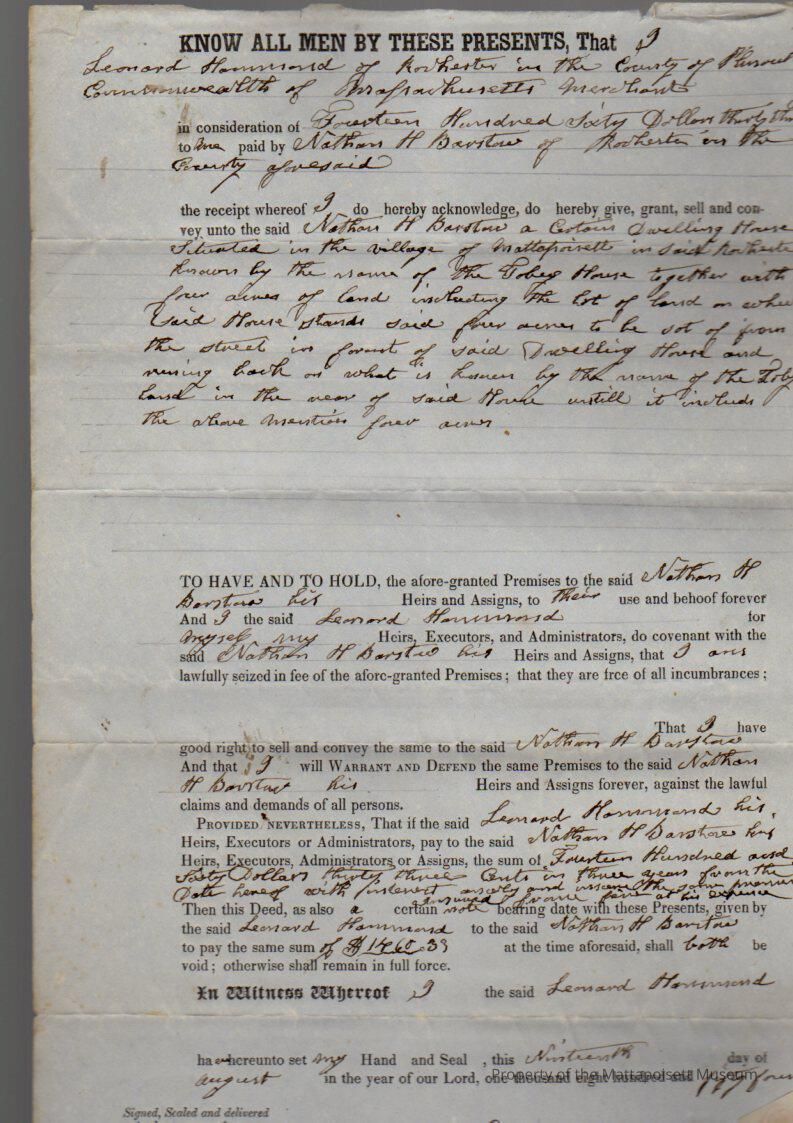 KNOW ALL MEN BY THESE PRESENTS, That I
Leonard Hammond of Rochester in the County of
Commonwealth of Massachusetts Merchant
in consideration of Fourteen Hundred Sixty Dollars
to me paid by Nathan H Barstow of Rochester in the
County aforesaid
the receipt whereof I do hereby acknowledge, do hereby give, grant, sell and con-
vey unto the said Nathan H Barstow a Certain Dwelling House
Situated in the village of Mattapoisett in said Rochester
known by the name of the Tobey House together with
four acres of land including the lot of land on
said House stands said four acres to be sot of from
the street in front of said Dwelling House and
runing back on what is known by the name of the
land in the rear of said House untill it includs
the above mention four acres
TO HAVE AND TO HOLD, the afore-granted Premises to the said Nathan H
Barstow his Heirs and Assigns, to their use and behoof forever
And I the said Leonard Hammond for
myself my Heirs, Executors, and Administrators, do covenant with the
said Nathan H Barstow his Heirs and Assigns, that I am
lawfully seized in fee of the afore-granted Premises; that they are free of all incumbrances;
That I have
good right to sell and convey the same to the said Nathan H Barstow
And that I will WARRANT AND DEFEND the same Premises to the said Nathan
H Barstow his Heirs and Assigns forever, against the lawful
claims and demands of all persons.
PROVIDED NEVERTHELESS, That if the said Leonard Hammond his
Heirs, Executors or Administrators, pay to the said Nathan H Barstow his
Heirs, Executors, Administrators or Assigns, the sum of Fourteen Hundred and
Sixty Dollars thirty three Cents in three years from the
Date hereof with interest and the same
at his expense
Then this Deed, as also a certain note bearing date with these Presents, given by
the said Leonard Hammond to the said Nathan H Barstow
to pay the same sum of $1460.33 at the time aforesaid, shall both be
void; otherwise shall remain in full force.
In Witness Whereof I the said Leonard Hammond
ha hereunto set my Hand and Seal , this Ninteenth day of
August in the year of our Lord, one thousand eight hundred and
Property of the Mattapoisett Museum
Signed, Sealed and delivered